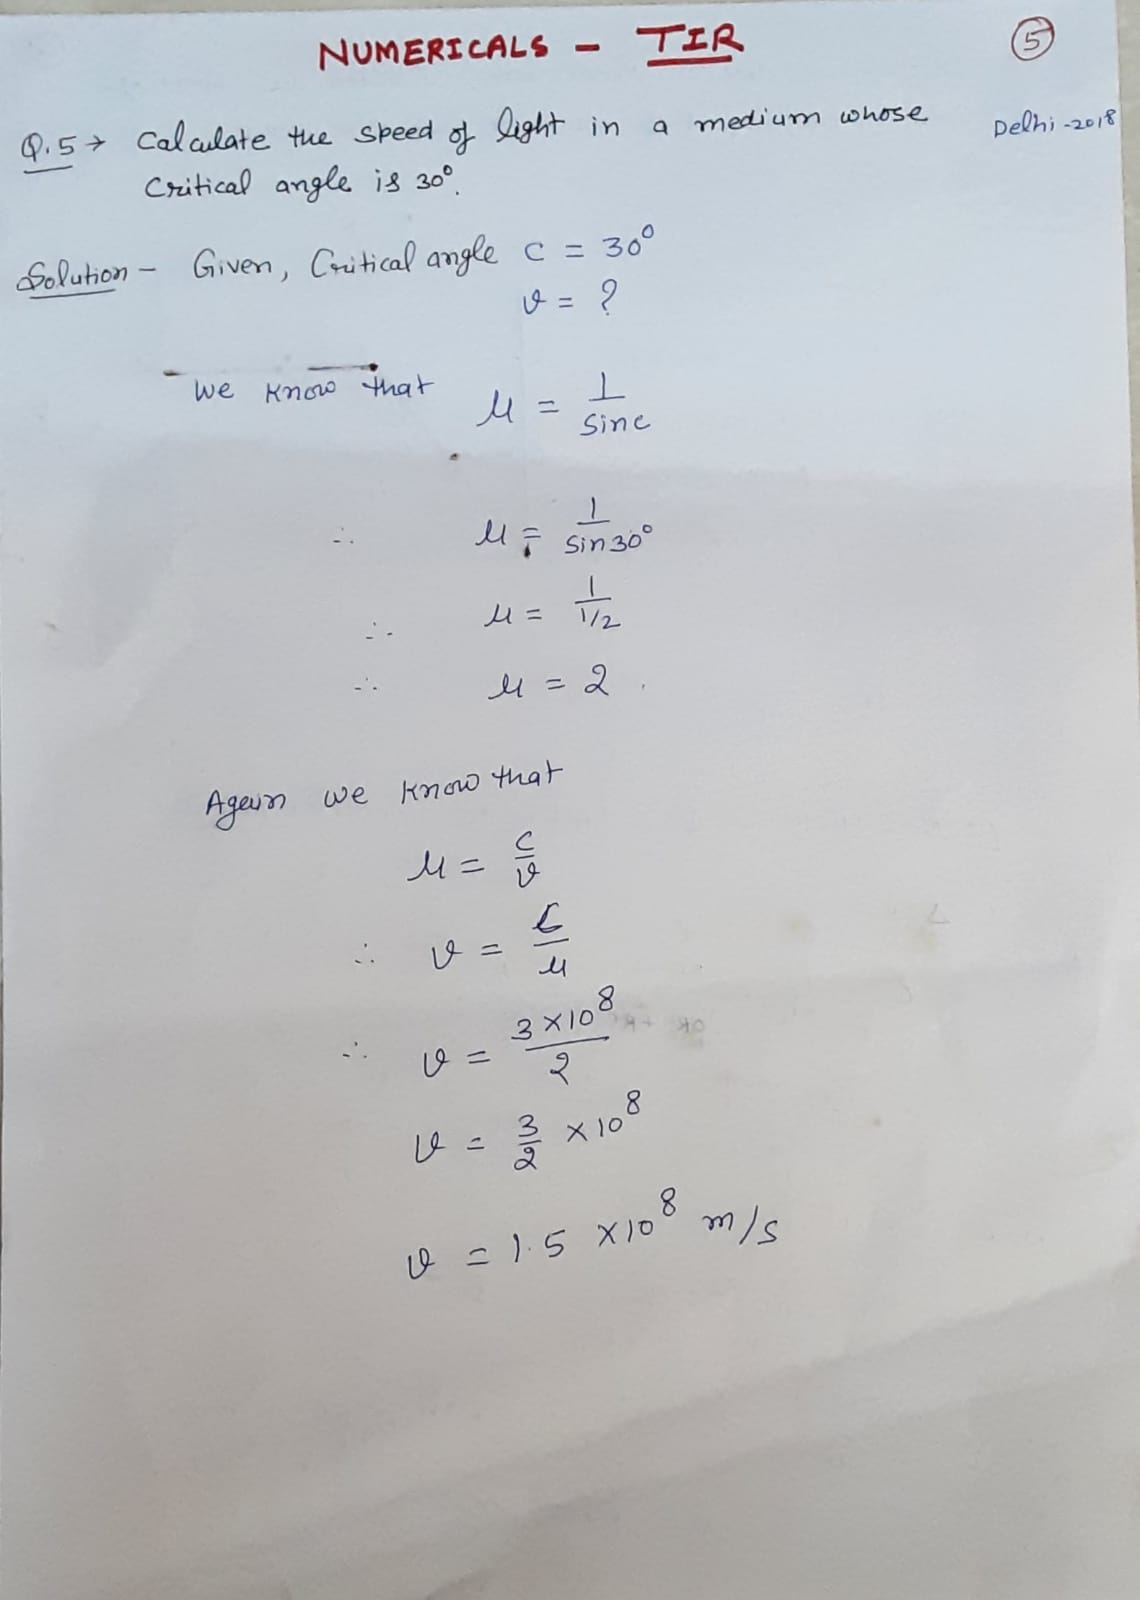 NUMERICALS - TIR
5
Q.5 → Calculate the speed of light in a medium whose Delhi-2018
Critical angle is 30°.
Solution - Given, Critical angle C = 30°
v = ?
We know that μ = 1/sinc
∴ μ = 1/sin30°
∴ μ = 1/1/2
∴ μ = 2
Again we know that
μ = c/v
∴ v = c/μ
∴ v = 3×10⁸/2
v = 3/2 ×10⁸
v = 1.5 ×10⁸ m/s